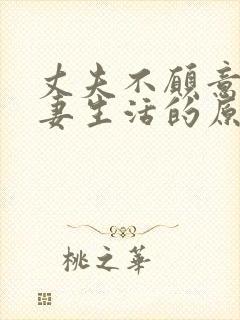 丈夫不愿意
妻生活的原
桃之華